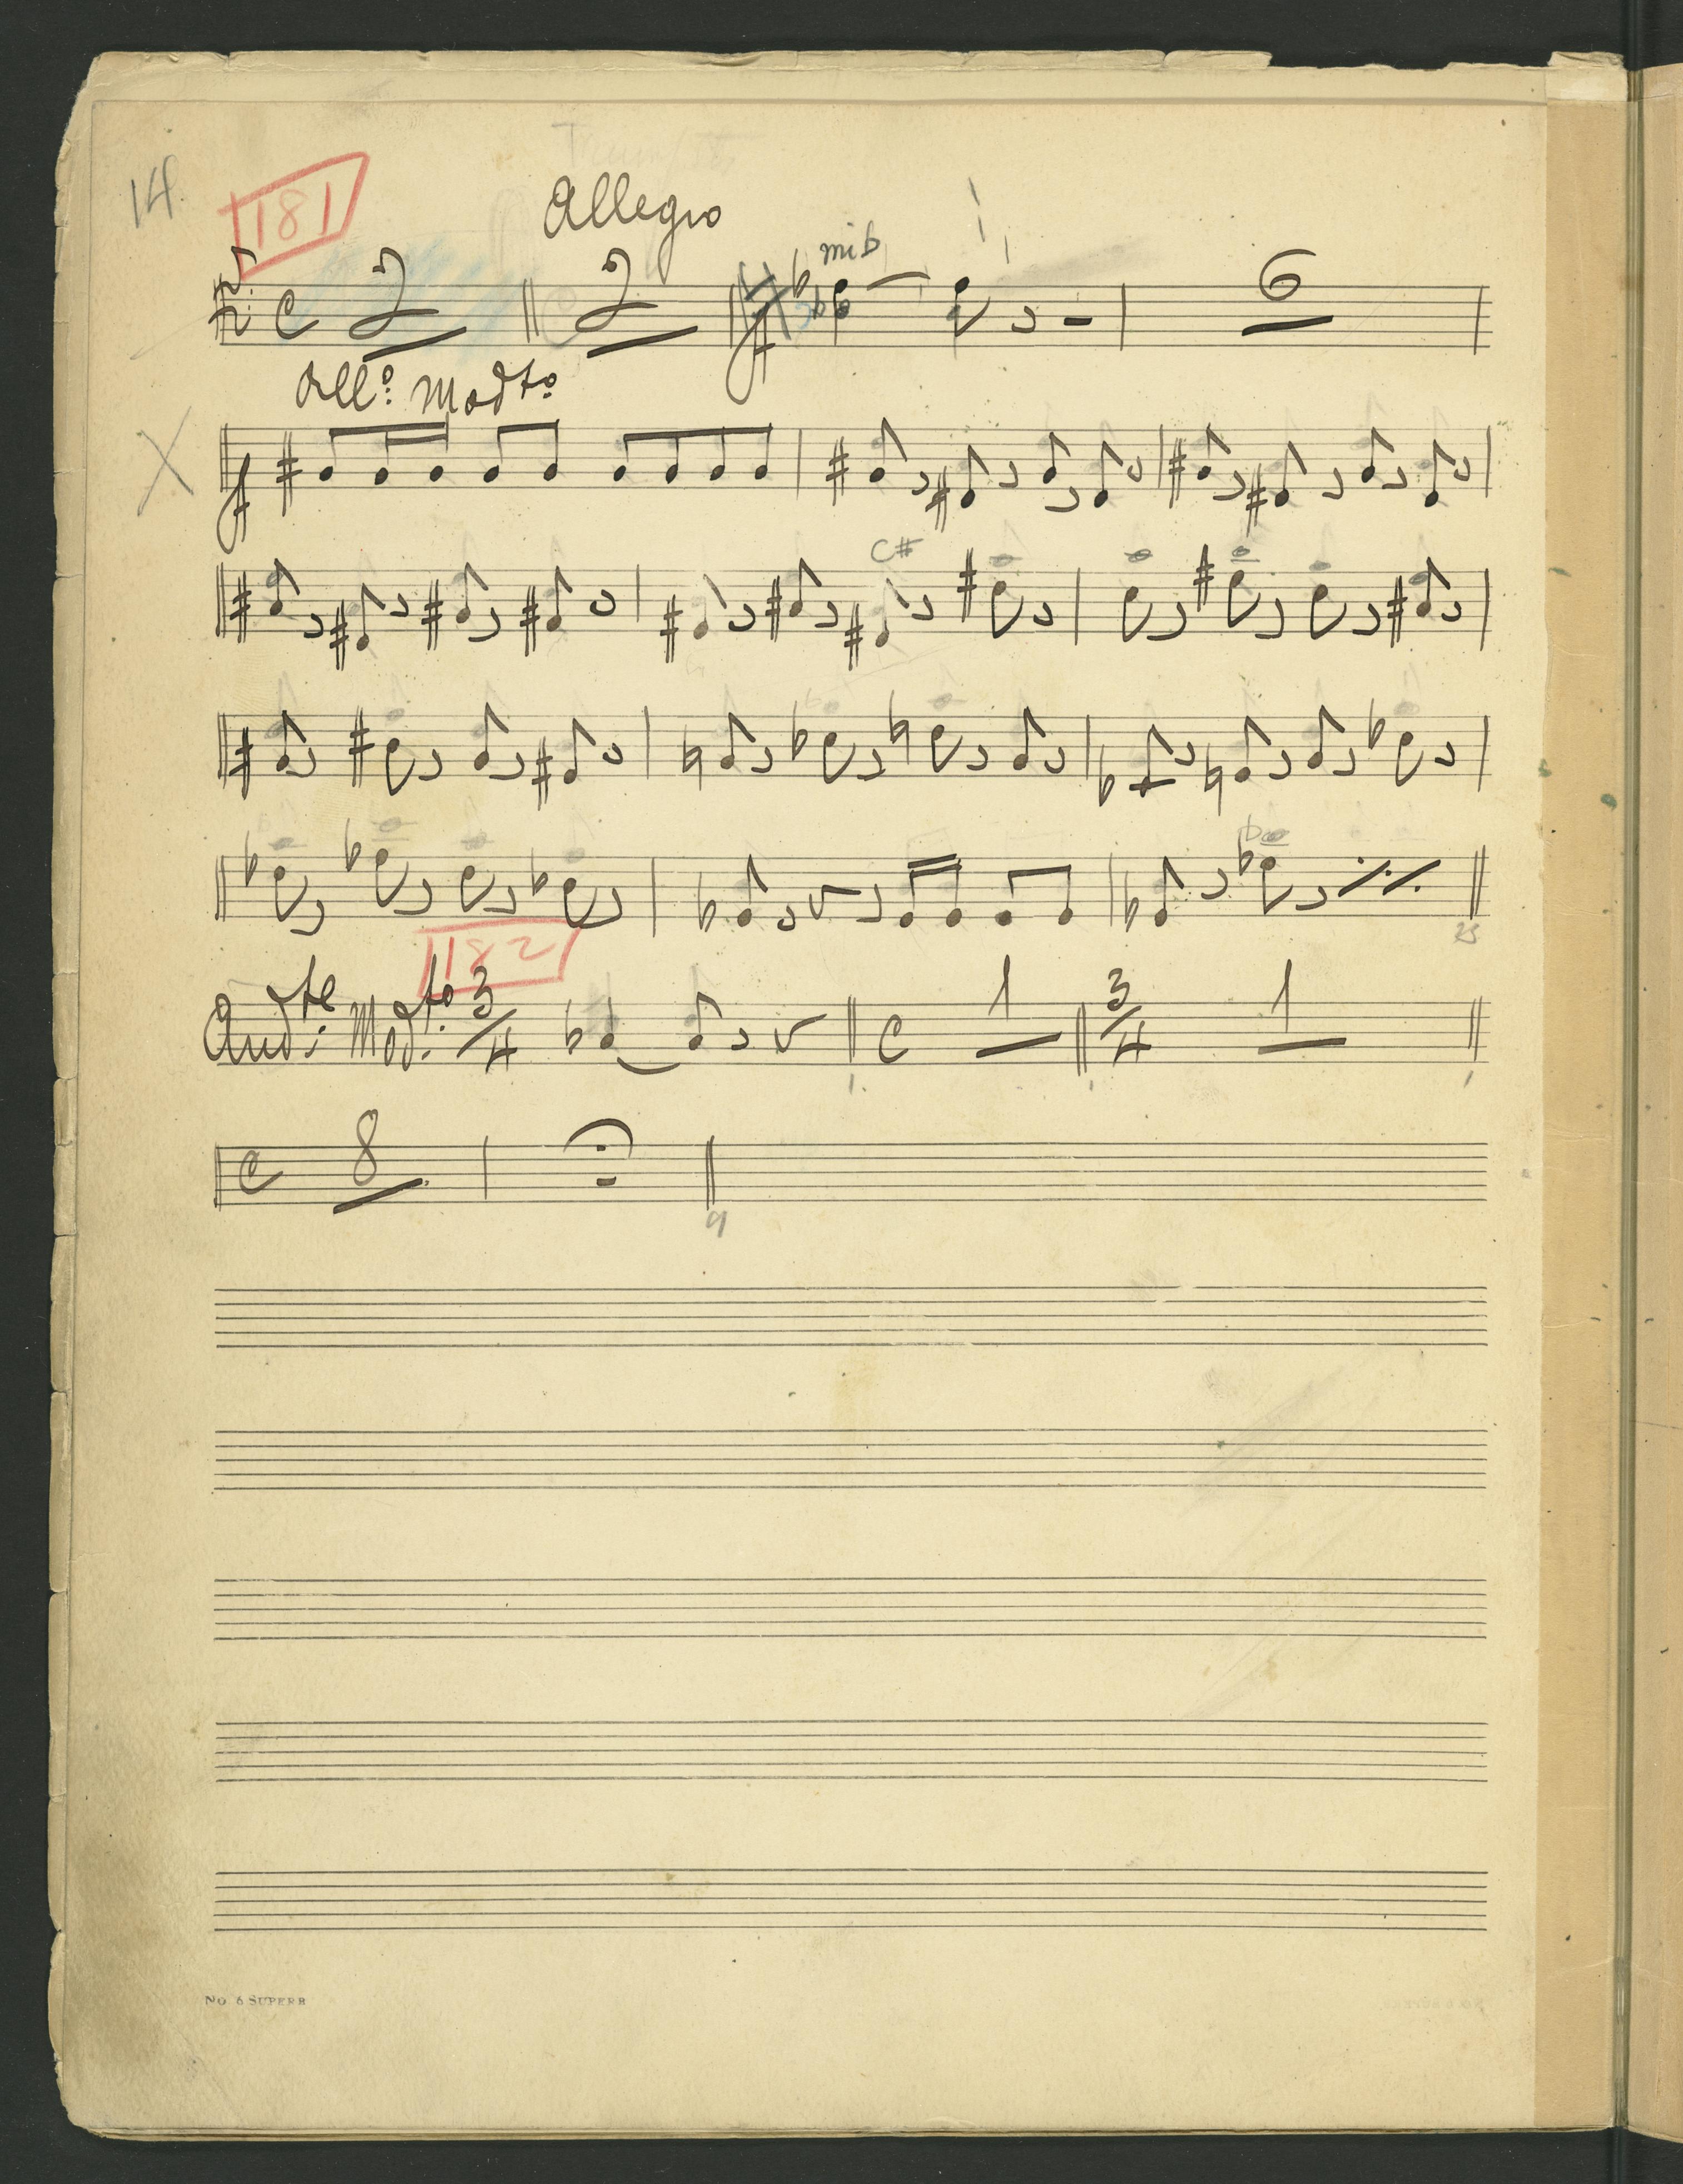 14.
181
Allegro
mib
C 2 2 6
All.º Mod.to
C#
25
182
And.te Mod.to 3/4 C 1 3/4 1
1. 1 1
C 8
9
No 6 SUPERB